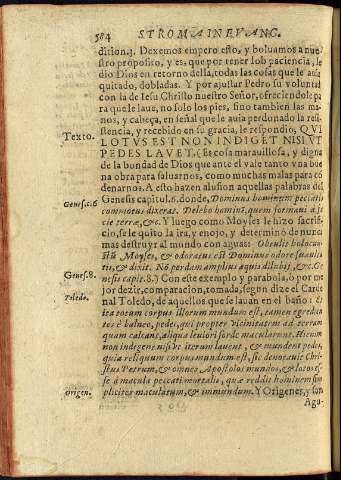 584 STROMA IN EVANG.
dition.3. Dexemos empero esto, y boluamos a nue-
stro proposito, y es, que por tener Iob paciencia, le
dio Dios en retorno della, todas las cosas que le auia
quitado, dobladas. Y por ajustar Pedro su voluntad
con la de Iesu Christo nuestro Señor, ofreciendole pa
ra que le laue, no solo los pies, sino tambien las ma-
nos, y cabeça, en señal que le auia perdonado la resi-
stencia, y recebido en su gracia, le respondio, QVI
Texto. LOTVS EST NON INDIGET NISI VT
PEDES LAVET, (Es cosa marauillosa, y digna
de la bondad de Dios que ante el vale tanto vna bue
na obra para saluarnos, como muchas malas para cõ
denarnos. A esto hazen alusion aquellas palabras del
Genes.c.6 Genesis capitul.6. donde, Dominus hominum peccatis
commotus dixerat. Delebo hominẽ, quem formaui à fa
cie terræ, &c. Y luego como Moyses le hizo sacrifi-
cio, se le quito la ira, y enojo, y determinò de nunca
mas destruyr al mundo con aguas: Obtulit holocau
stũ Moyses, & odoratus est Dominus odorẽ suauita-
tis, & dixit. Nõ perdam amplius aquis dilubij, &c. Ge
Genes.8. nesis capit.8.) Con este exemplo y parabola, ò por me
jor dezir, comparacion, tomada, segun dize el Carde
Toledo. nal Toledo, de aquellos que se lauan en el baño: Et
ita totum corpus illorum mundum est, tamen egredien
tes è balneo, pedes, qui propter vicinitatem ad terram
quam calcant, aliqua leuiori sorde maculantur. Hi enim
non indigent nisi vt iterum lauent, & mundent pedes,
quia reliquum corpus mundum est, sic denotauit Chri-
stus Petrum, & omnes Apostolos mundos, & lotos es-
se à macula peccati mortalis, qua reddit hominem sim
Origen. pliciter maculatum, & immundum. Y Origenes, y san
Agu-